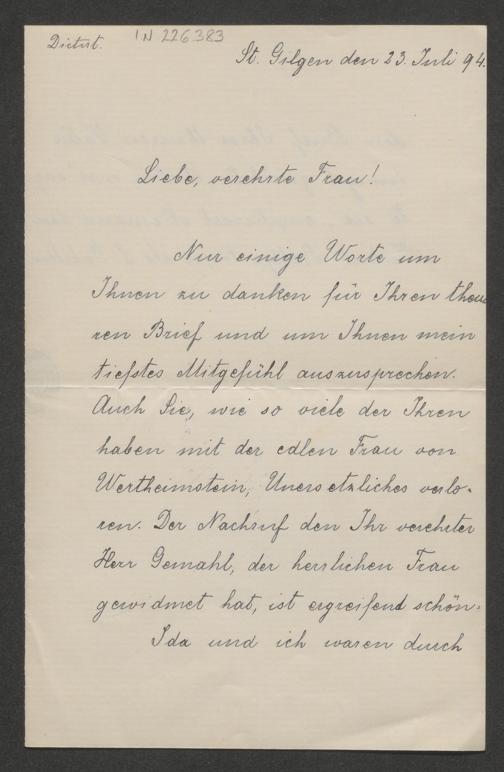 Dictirt.
IN 226383
St. Gilgen den 23. Juli 94.
Liebe, verehrte Frau!
Nur einige Worte um
Ihnen zu danken für Ihren theue
ren Brief und um Ihnen mein
tiefstes Mitgefühl auszusprechen.
Auch Sie, wie so viele der Ihren
haben mit der edlen Frau von
Wertheimstein, Unersetzliches verlo-
ren. Der Nachruf den Ihr verehrter
Herr Gemahl, der herrlichen Frau
gewidmet hat, ist ergreifend schön.
Ida und ich waren durch